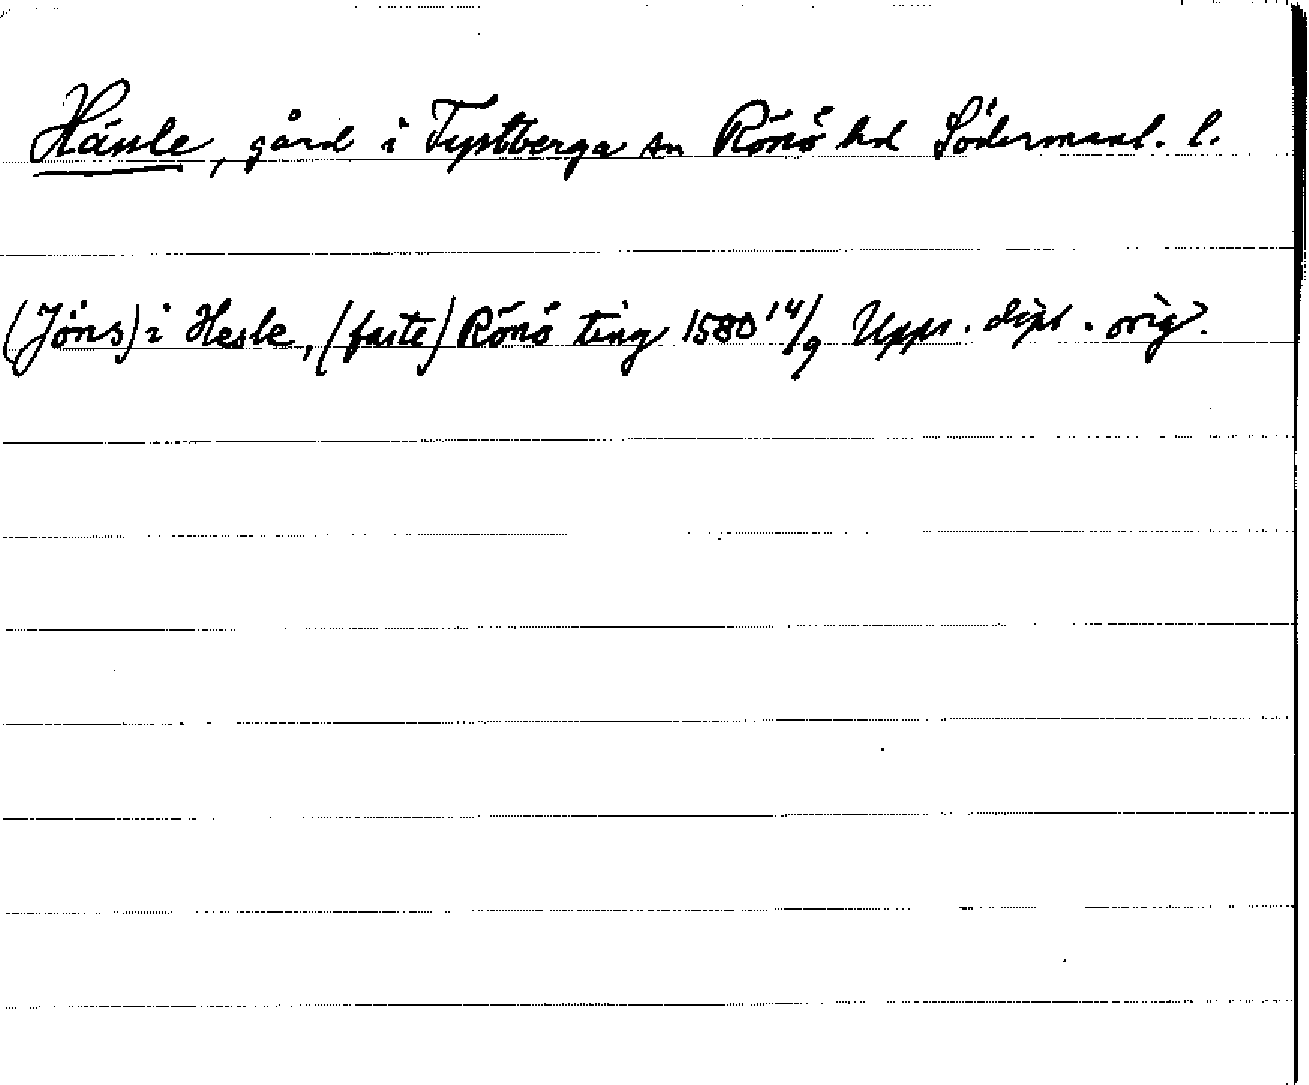 Hässle, gård i Tystberga sn Rönö hd Södermanl. l.
(Jöns) i Hesle, (faste) Rönö ting 1580 14/9 Upps. dipl. orig.